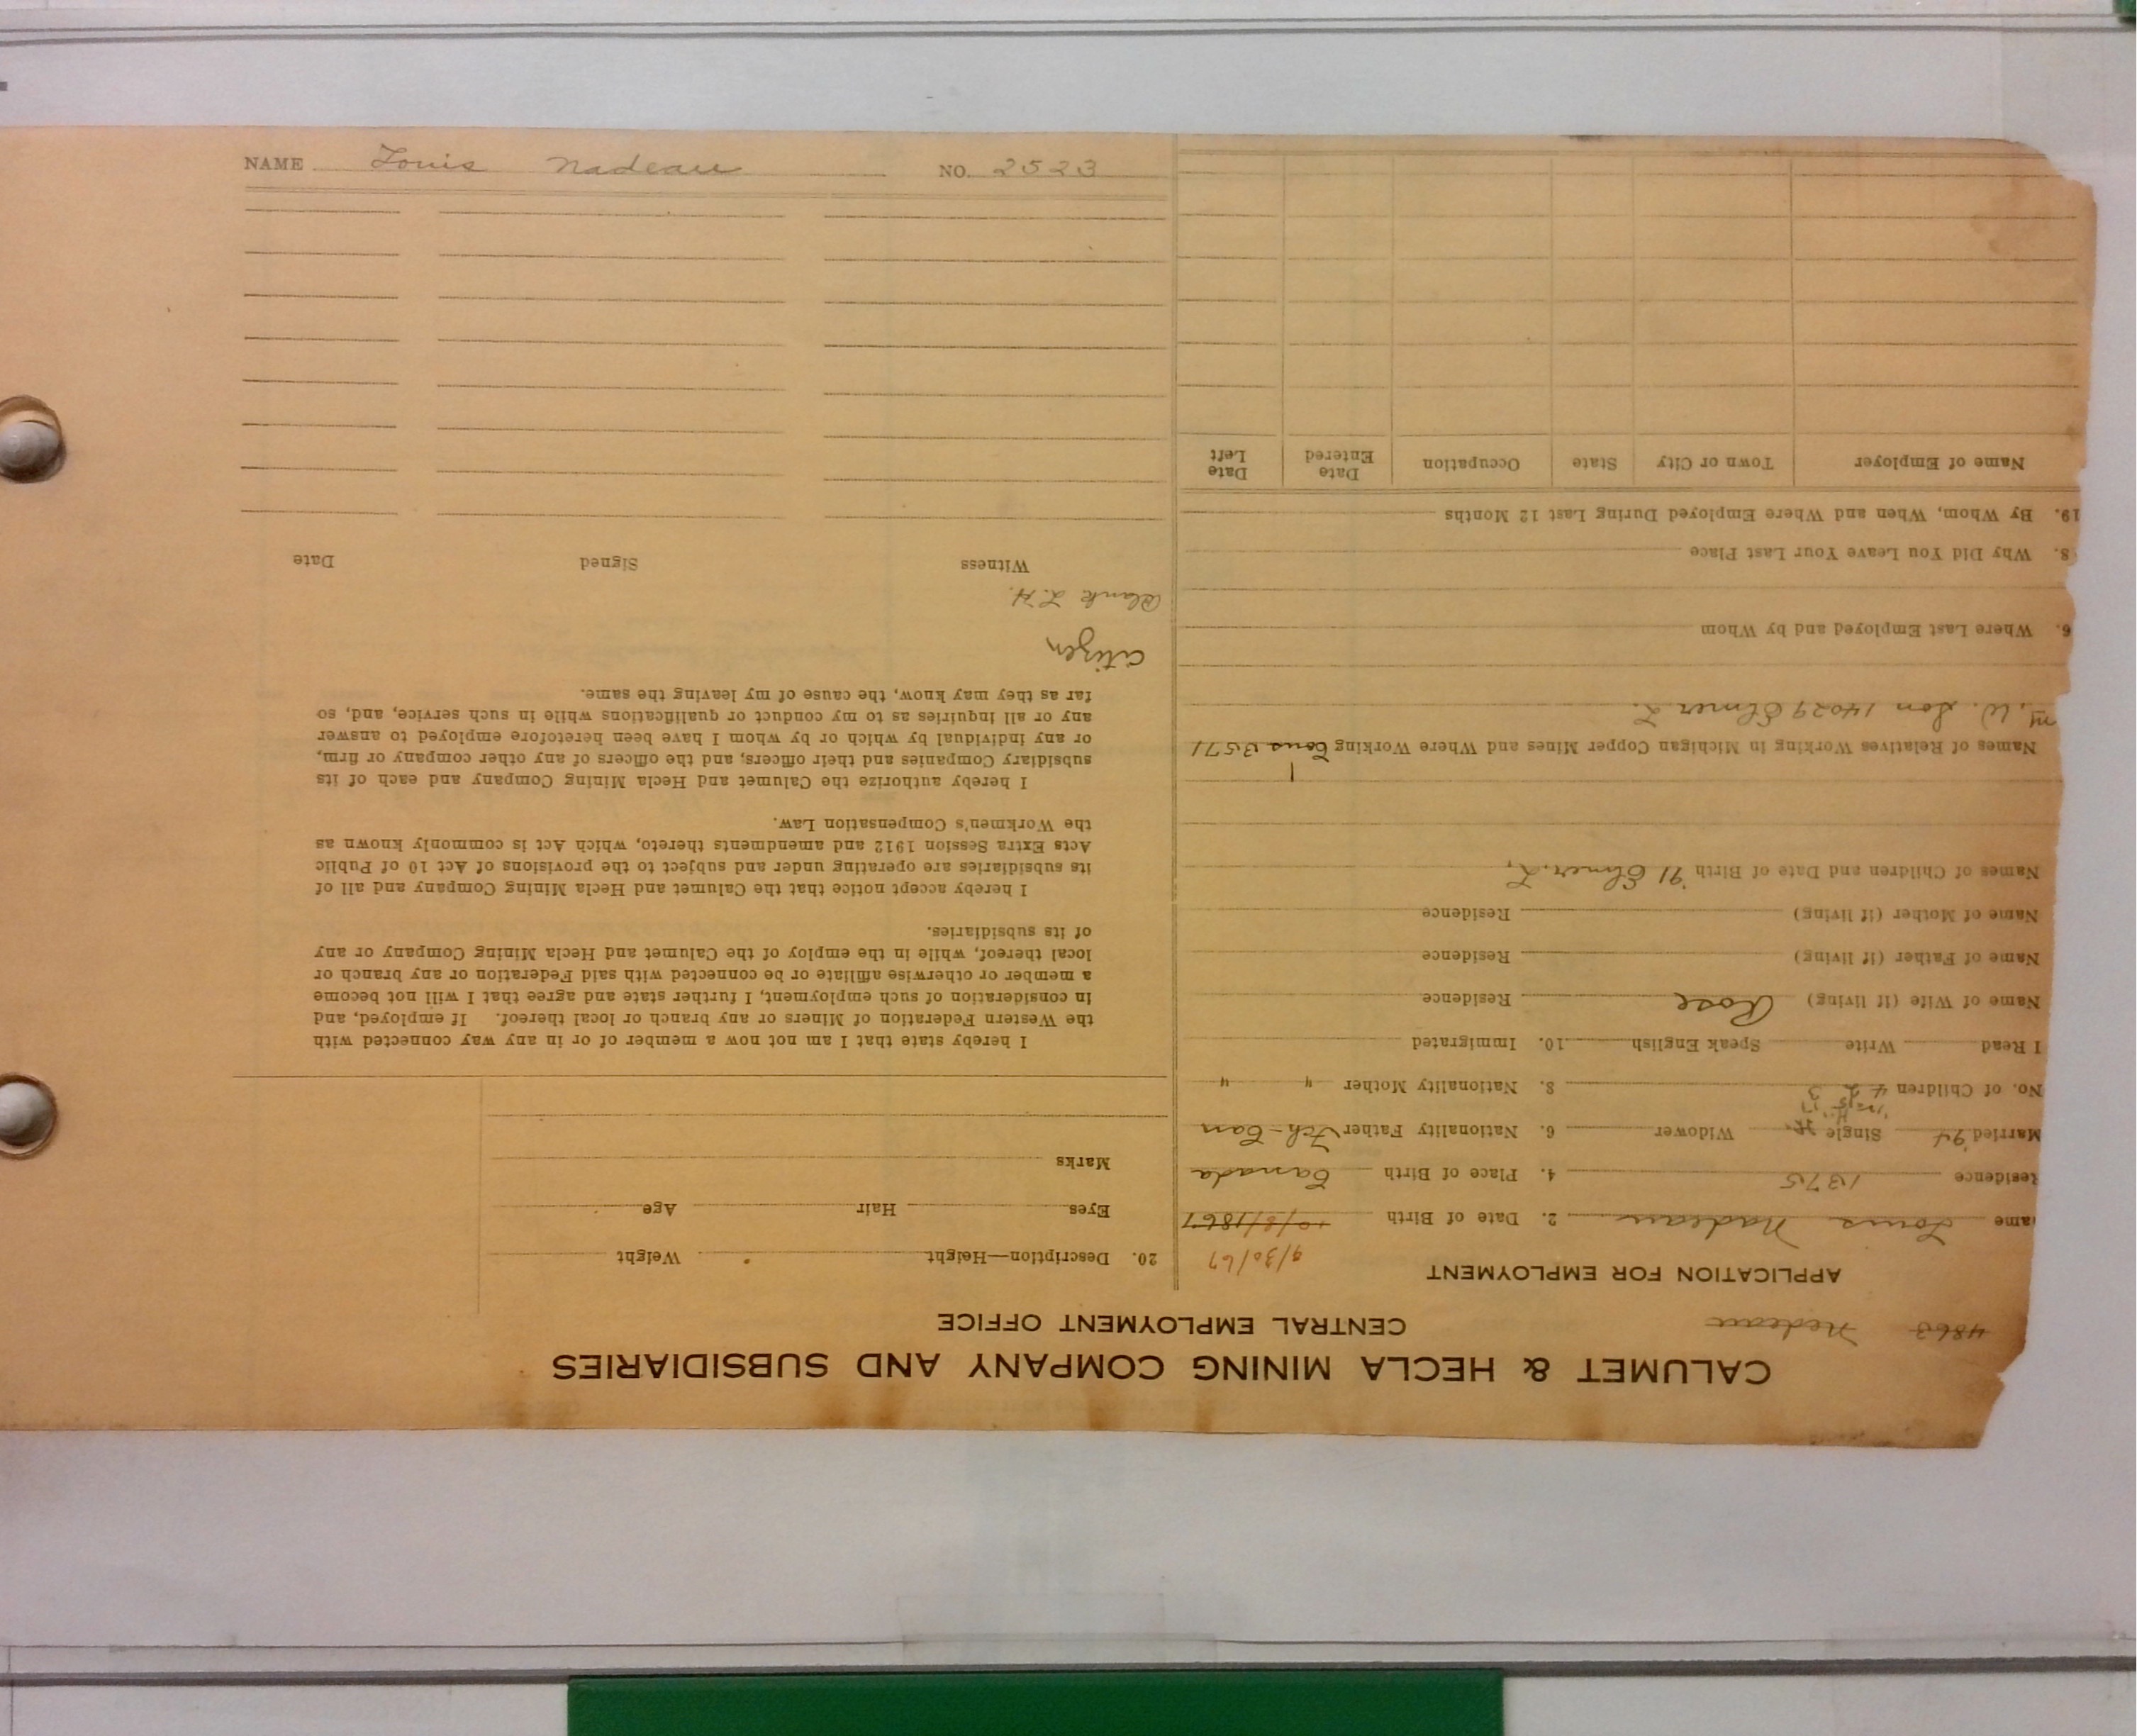 NAME Louis Nadeau NO. 2523
CALUMET & HECLA MINING COMPANY AND SUBSIDIARIES
CENTRAL EMPLOYMENT OFFICE
4863 Nedeau
APPLICATION FOR EMPLOYMENT
9/30/67
ame Louis Nadeau 2. Date of Birth 10/8/1867
Residence 1375 4. Place of Birth Canada
Married '94 Single Widower 6. Nationality Father Fch-Can
No. of Children 4 2 3 8. Nationality Mother " "
I Read Write Speak English 10. Immigrated
Name of Wife (if living) Rose Residence
Name of Father (if living) Residence
Name of Mother (if living) Residence
Names of Children and Date of Birth '91 Elmer L.
Names of Relatives Working in Michigan Copper Mines and Where Working Cous 3571
M. W. Son 14029 Elmer L.
6. Where Last Employed and by Whom
8. Why Did You Leave Your Last Place
19. By Whom, When and Where Employed During Last 12 Months
Name of Employer Town or City State Occupation Date Entered Date Left
20. Description—Height Weight
Eyes Hair Age
Marks
I hereby state that I am not now a member of or in any way connected with
the Western Federation of Miners or any branch or local thereof. If employed, and
in consideration of such employment, I further state and agree that I will not become
a member or otherwise affiliate or be connected with said Federation or any branch or
local thereof, while in the employ of the Calumet and Hecla Mining Company or any
of its subsidiaries.
I hereby accept notice that the Calumet and Hecla Mining Company and all of
its subsidiaries are operating under and subject to the provisions of Act 10 of Public
Acts Extra Session 1912 and amendments thereto, which Act is commonly known as
the Workmen's Compensation Law.
I hereby authorize the Calumet and Hecla Mining Company and each of its
subsidiary Companies and their officers; and the officers of any other company or firm,
or any individual by which or by whom I have been heretofore employed to answer
any or all inquiries as to my conduct or qualifications while in such service, and, so
far as they may know, the cause of my leaving the same.
Citizen
Blank L.H.
Witness Signed Date